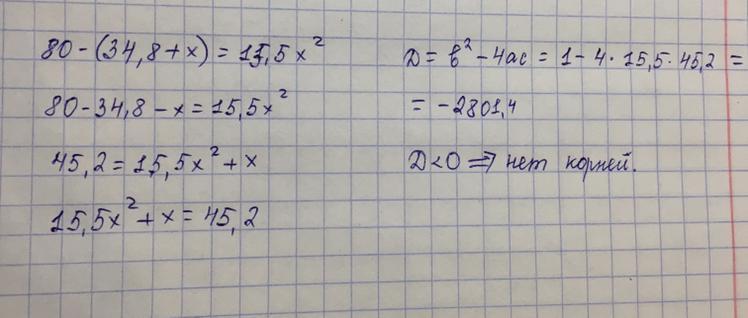 80 - (34,8 + x) = 15,5x²
80 - 34,8 - x = 15,5x²
45,2 = 15,5x² + x
15,5x² + x = 45,2
D = b² - 4ac = 1 - 4 · 15,5 · 45,2 =
= -2801,4
D < 0 ⇒ нет корней.